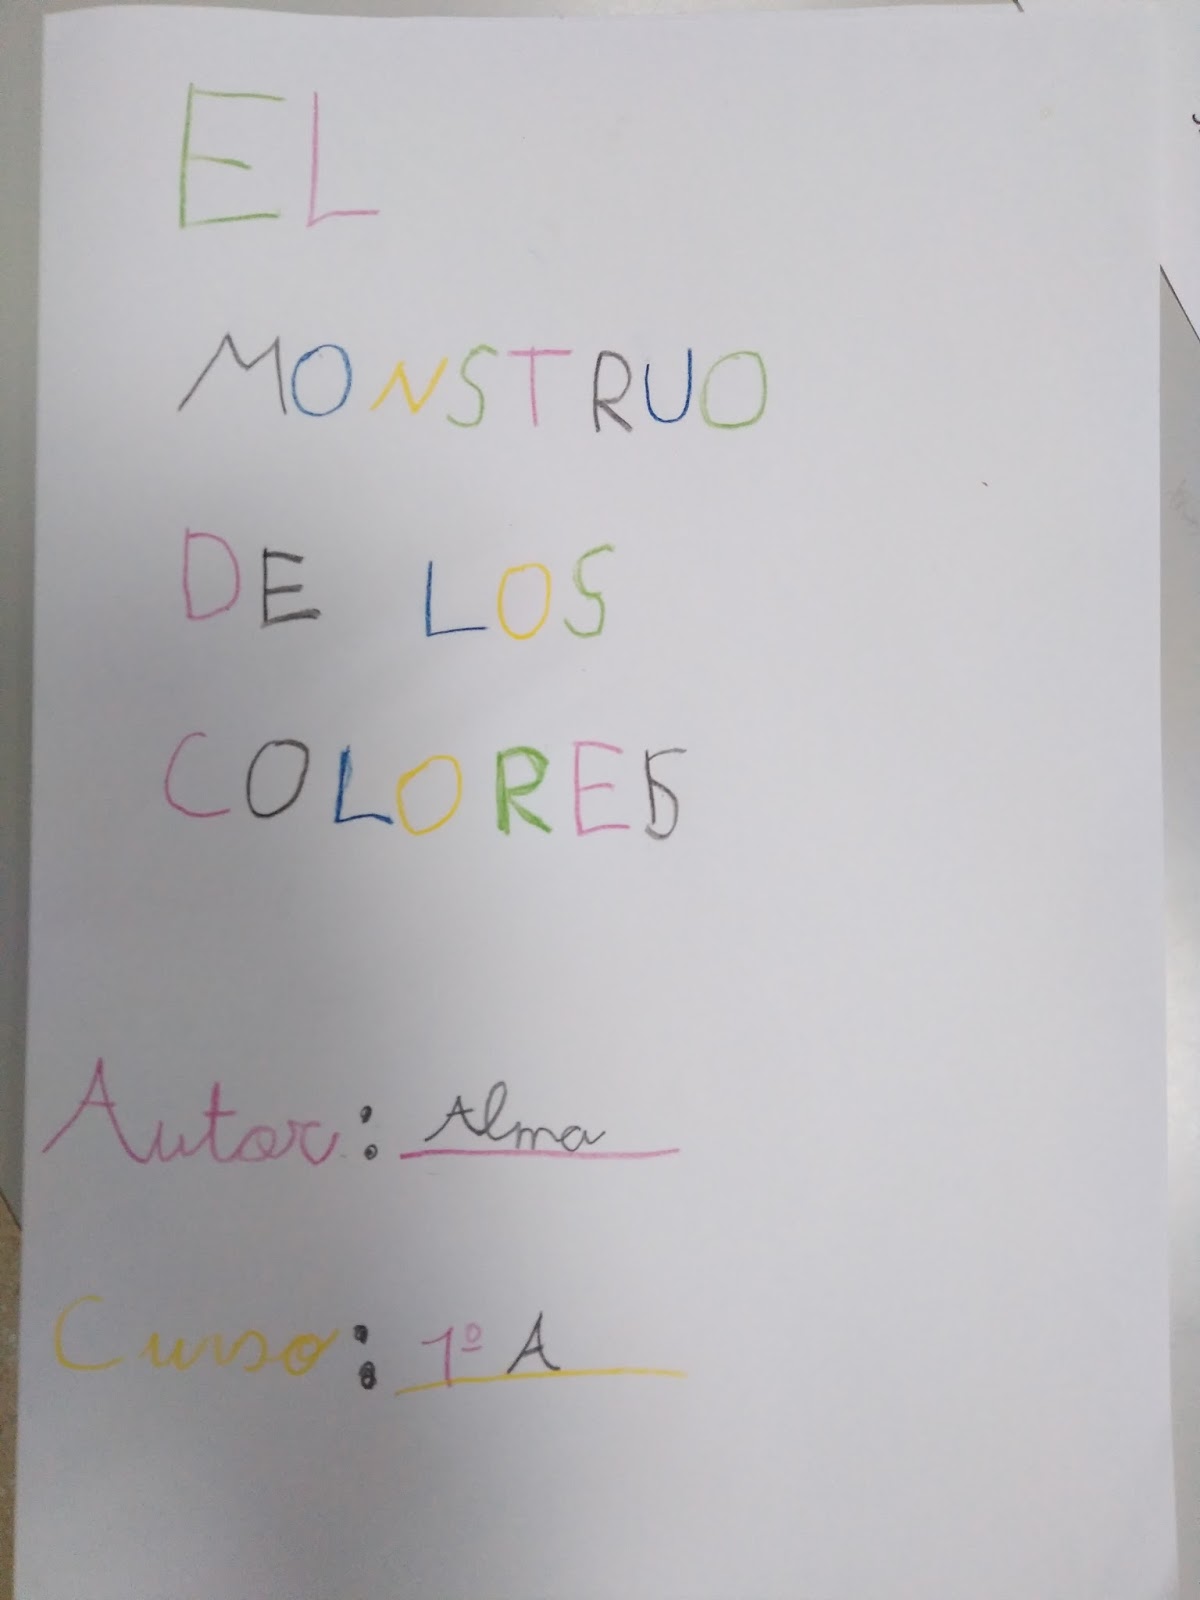 EL
MONSTRUO
DE LOS
COLORES
Autor: Alma
Curso: 1º A